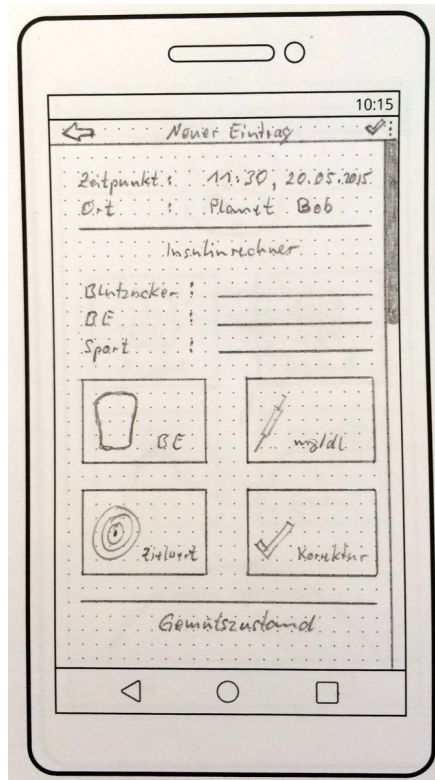 10:15
Neuer Eintrag
Zeitpunkt : 11:30, 20.05.2015
Ort : Planet Bob
Insulinrechner
Blutzucker :
BE :
Sport :
BE
mg/dl
Zielwert
Korrektur
Gemütszustand